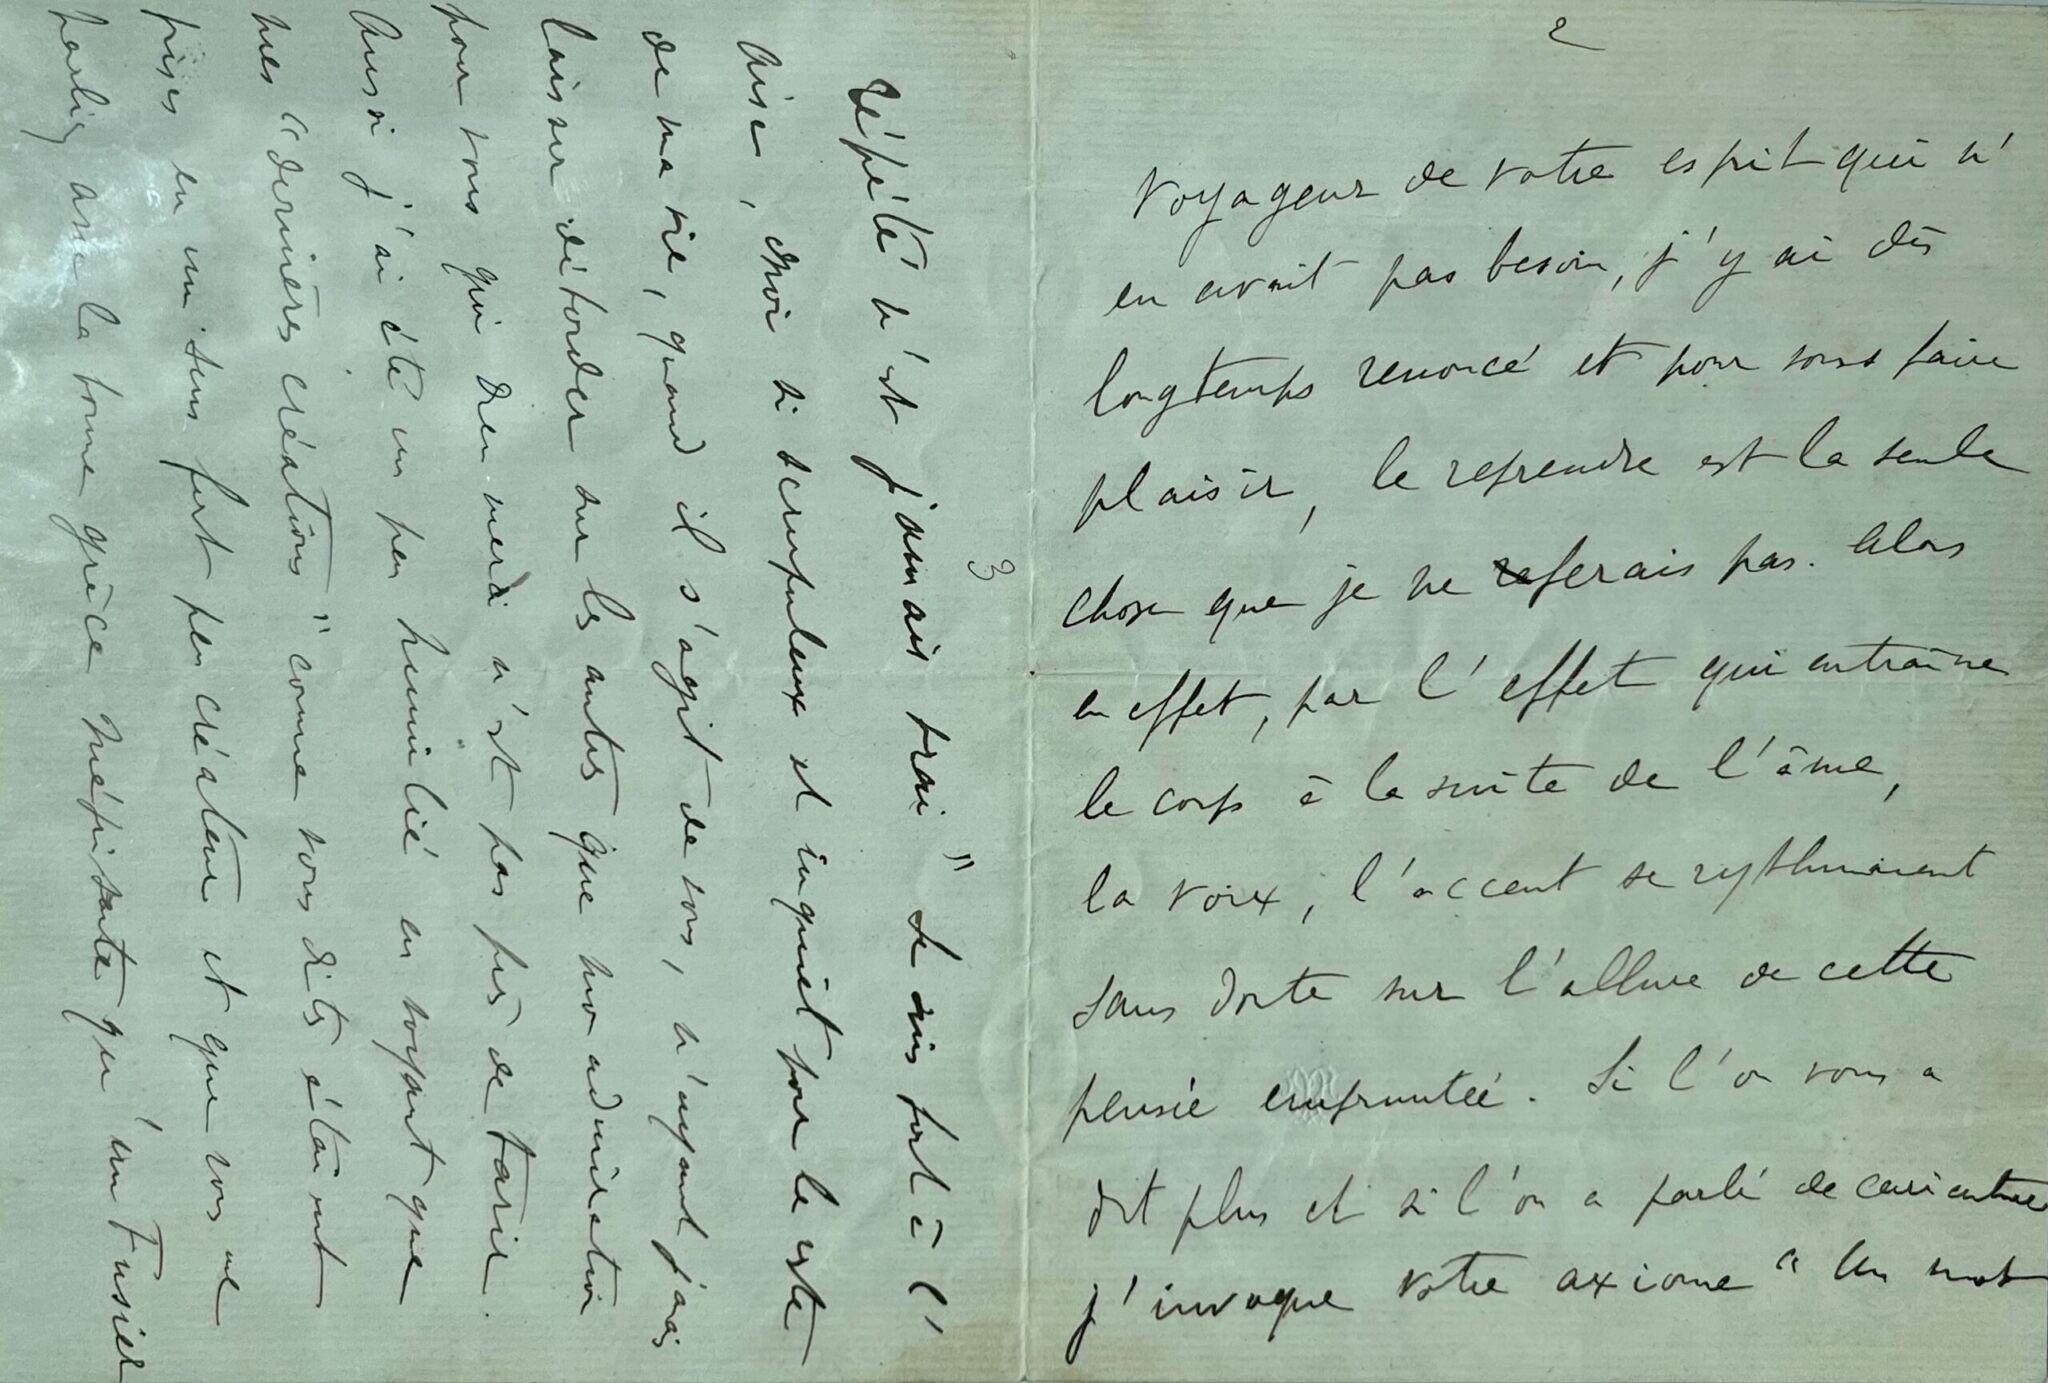 2
voyageur de votre esprit qui n'
en avait pas besoin, j'y ai dès
longtemps renoncé et pour vous faire
plaisir, le reprendre est la seule
chose que je ne referais pas. Alors
en effet, par l'effet qui entraîne
le corps à la suite de l'âme,
la voix, l'accent se rythmaient
sans doute sur l'allure de cette
pensée empruntée. Si l'on vous a
dit plus et si l'on a parlé de caricatures
j'invoque votre axiome " Un mot
3
répété n'est jamais vrai " Je suis fort à l'
aise, moi si scrupuleux et inquiet pour le reste
de ma vie, quand il s'agit de vous, n'ayant jamais
laissé déborder sur les autres que mon admiration
pour vous qui Dieu merci n'est pas près de tarir.
Aussi j'ai été un peu humilié en voyant que
mes " dernières créations " comme vous dites étaient
prises en un sens fort peu créateur et que vous me
parliez avec la bonne grâce méprisante qu'un Fusier